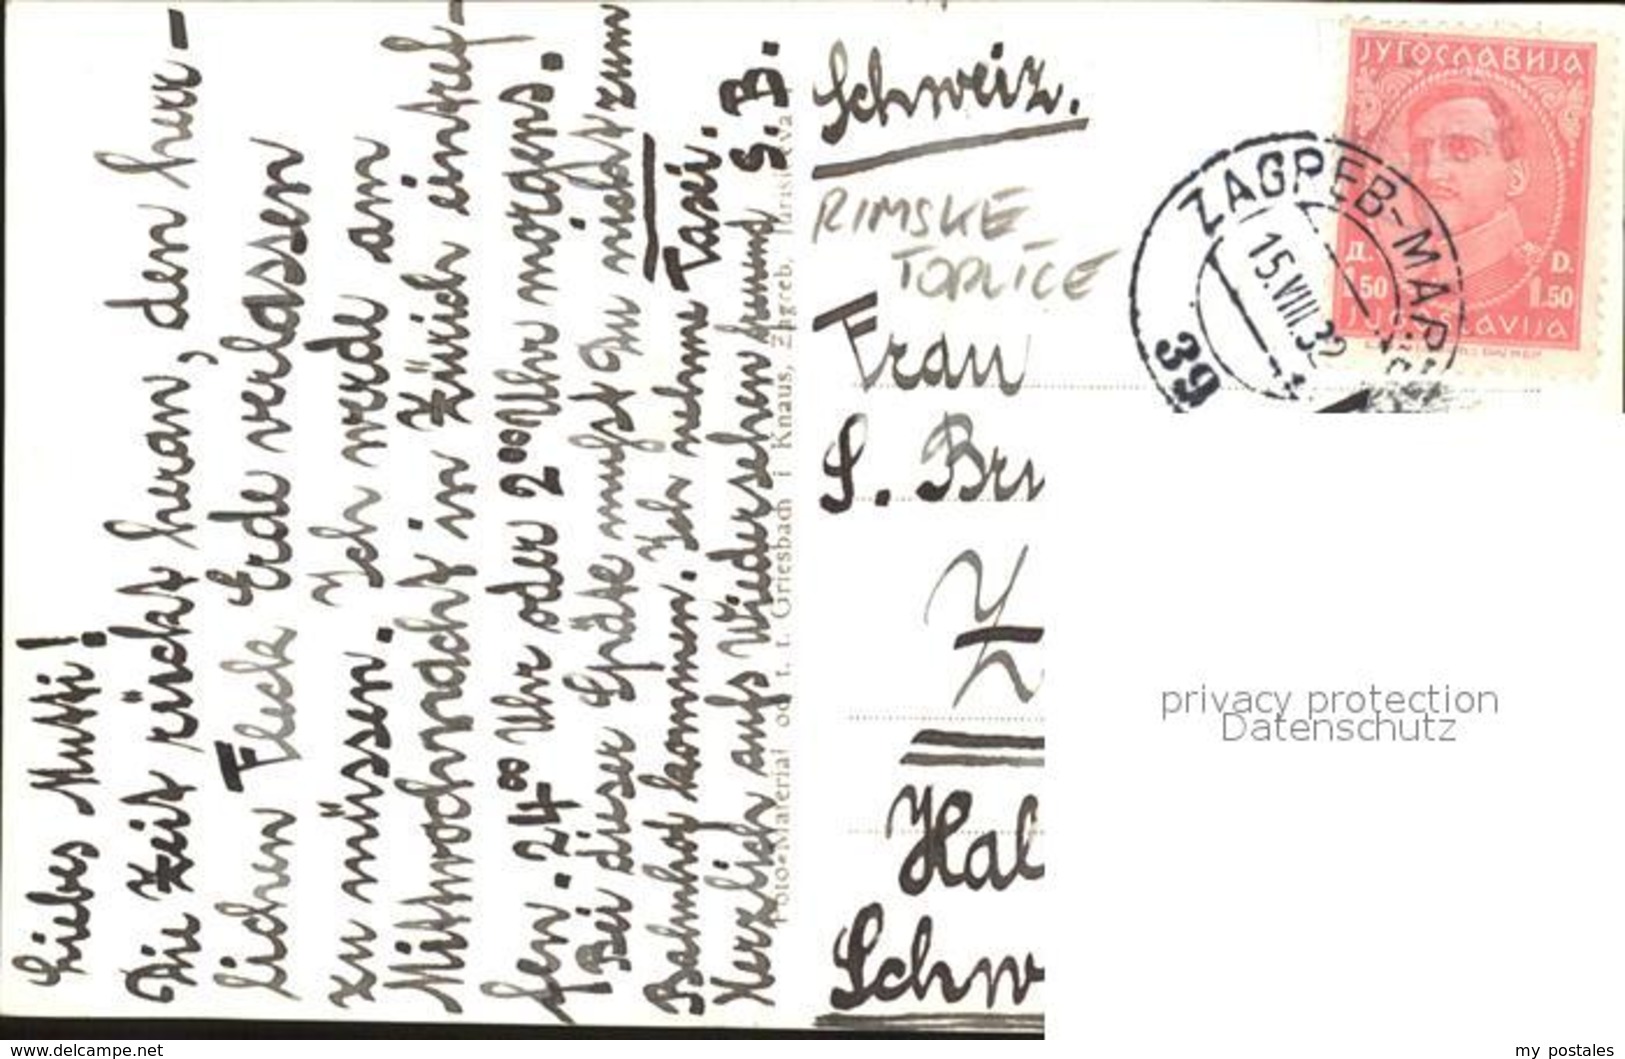 Liebes Mutti!
Die Zeit rückt heran, den herr-
lichen Fleck Erde verlassen
zu müssen. Ich werde am
Mittwochnacht in Zürich eintref-
fen. 24⁰⁰ Uhr oder 2⁰⁰ Uhr morgens.
Bei dieser Späte mußt Du nicht zum
Bahnhof kommen. Ich nehme Taxi.
Herzlich aufs Wiedersehen S. B.
Foto-Material od t. t. Griesbach i Knaus, Zagreb,
Schweiz.
RIMSKE
TOPLICE
Frau
S. Br
Z
Hal
Schw
ЈУГОСЛАВИЈА
Д. 1.50
D. 1.50
JUGOSLAVIJA
ZAGREB-MAR
15.VIII.32
39
privacy protection
Datenschutz
www.delcampe.net
my_postales